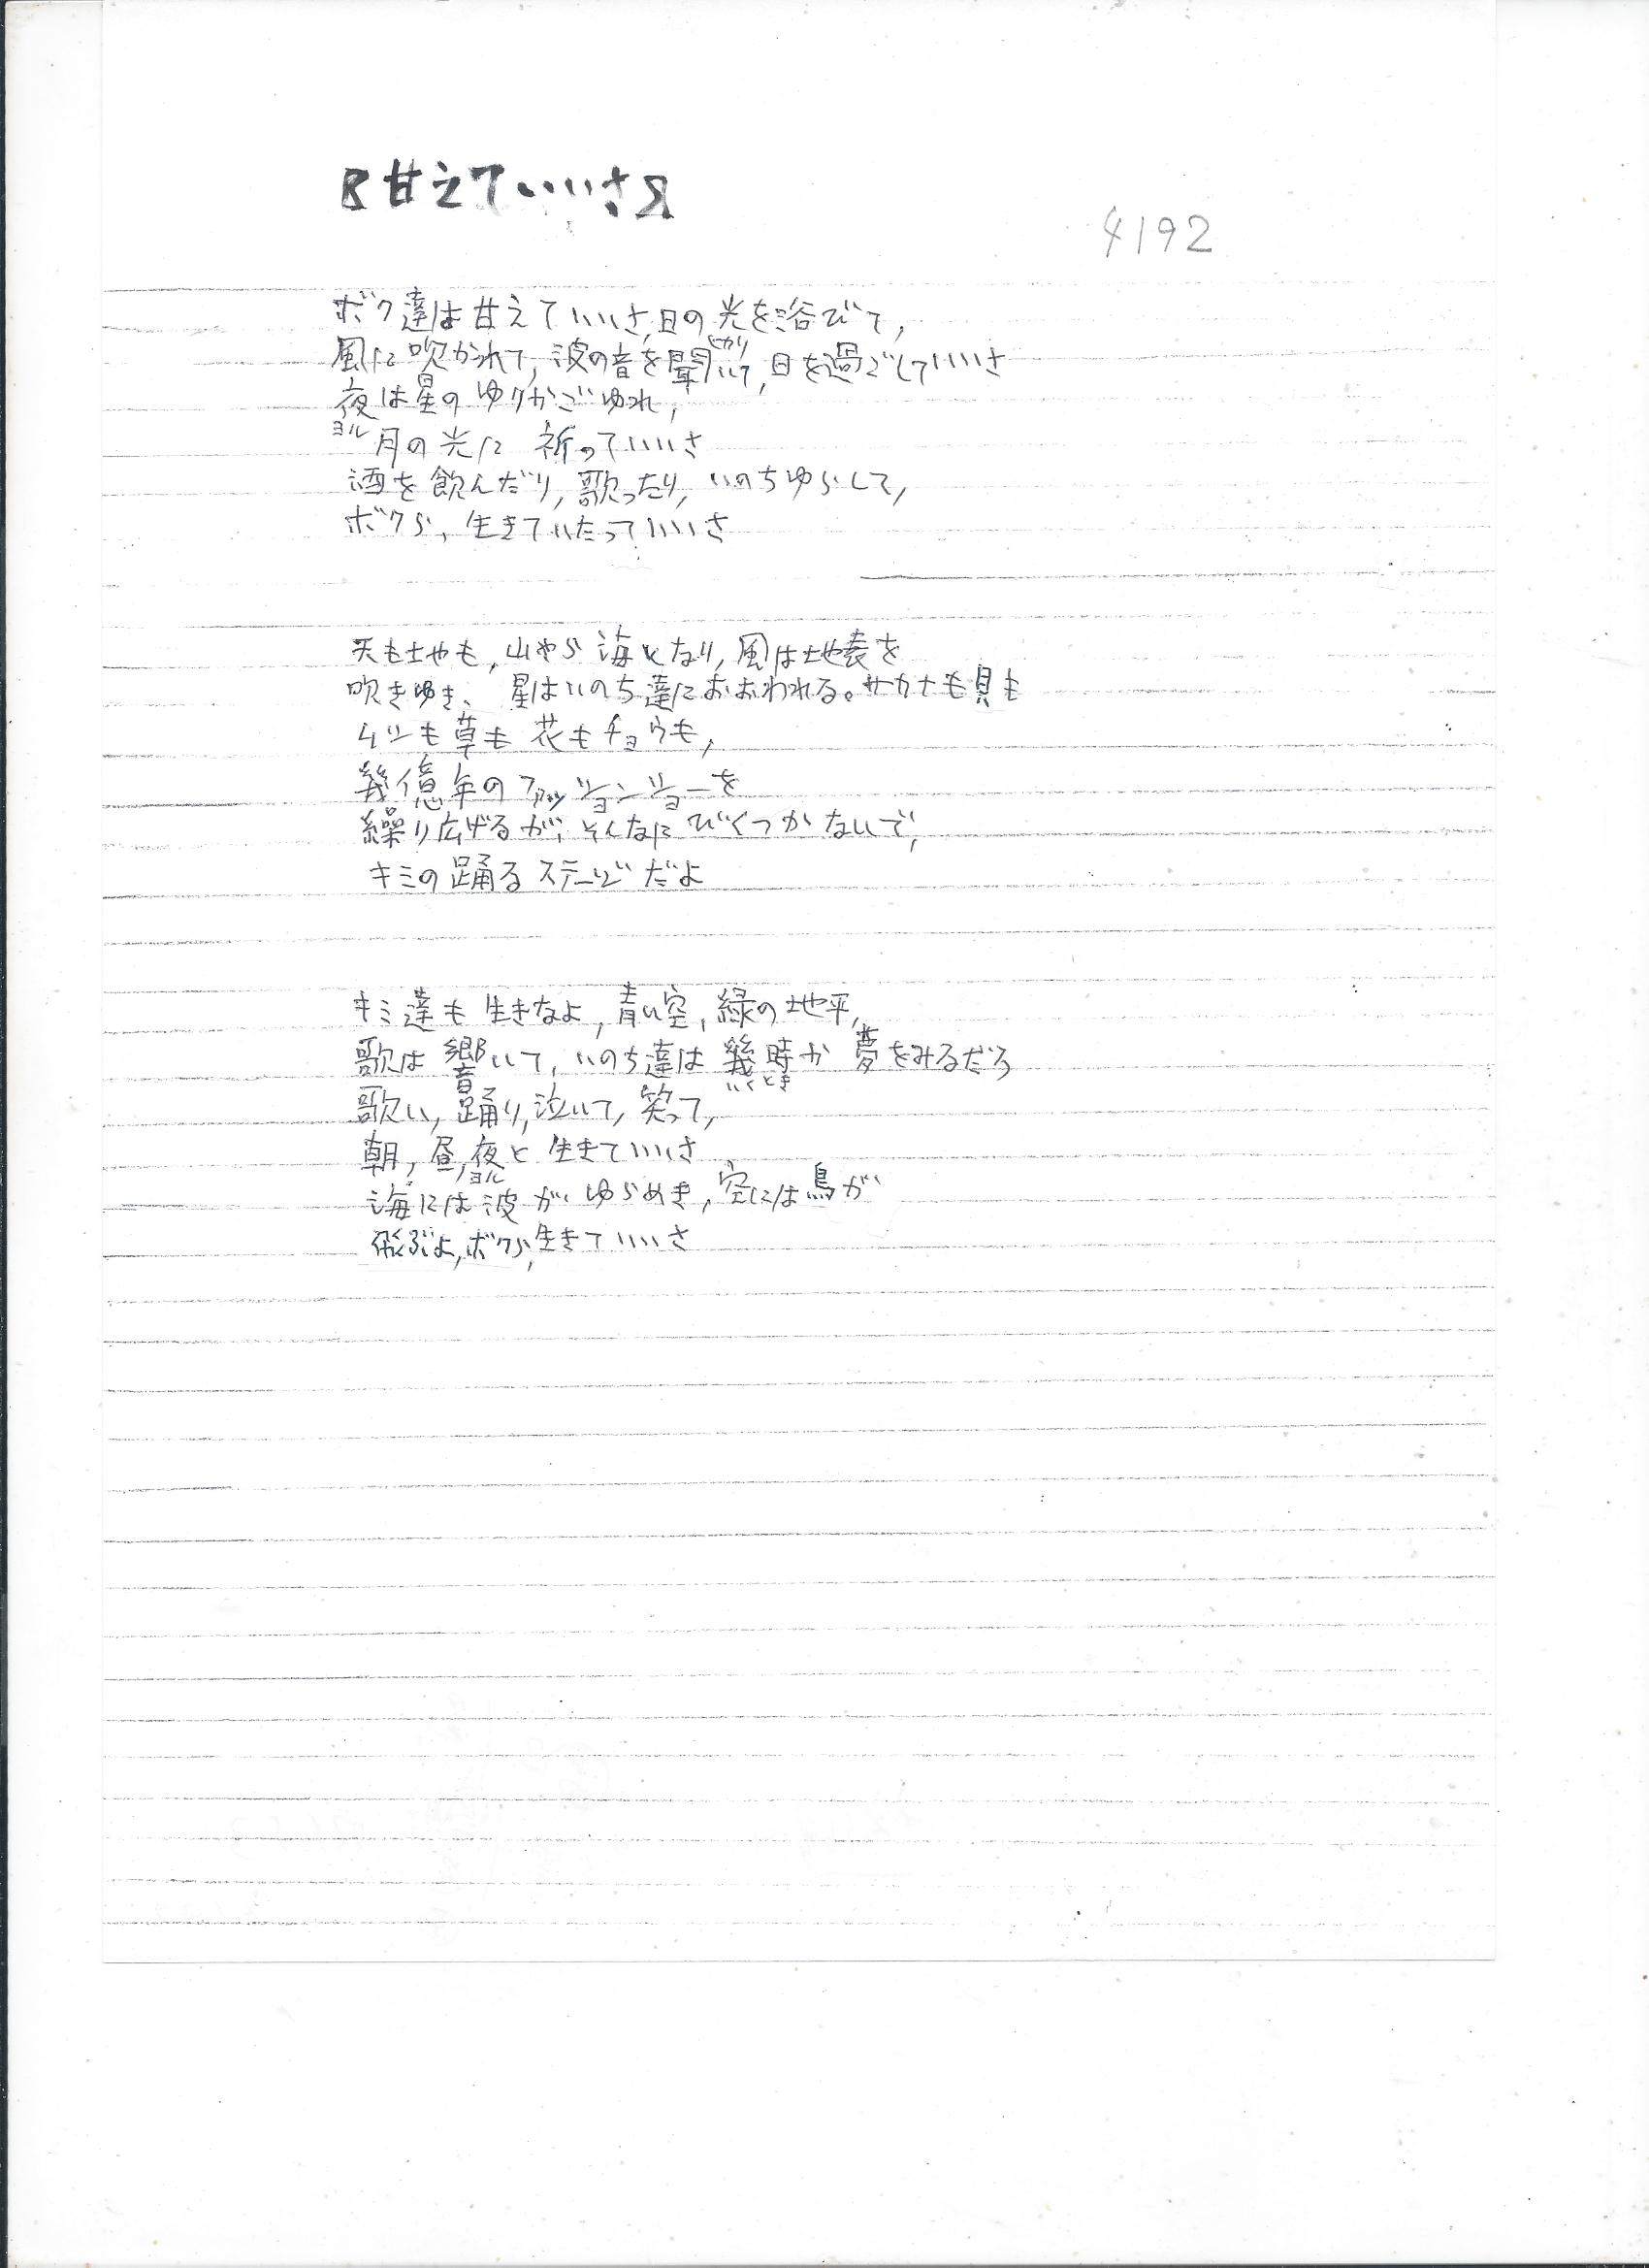 甘えていいさ
4192
ボク達は甘えていいさ,日の光を浴びて,
ひかり
風に吹かれて,波の音を聞いて,日を過ごしていいさ
夜は星のゆりかごゆれ,
ヨル
月の光に 祈っていいさ
酒を飲んだり,歌ったり,いのちゆらして,
ボクら,生きていたっていいさ
天も地も,山やら海となり,風は地表を
吹きゆき、星はいのち達におおわれる。サカナも貝も
ムシも草も花もチョウも,
幾億年のファッションショーを
繰り広げるが,そんなにびくつかないで,
キミの踊るステージだよ
キミ達も生きなよ,青い空,緑の地平,
歌は響いて,いのち達は幾時か夢をみるだろ
いくとき
歌い,踊り,泣いて,笑って,
朝,昼,夜と生きていいさ
ヨル
海には波がゆらめき,空には鳥が
飛ぶよ,ボクら,生きていいさ